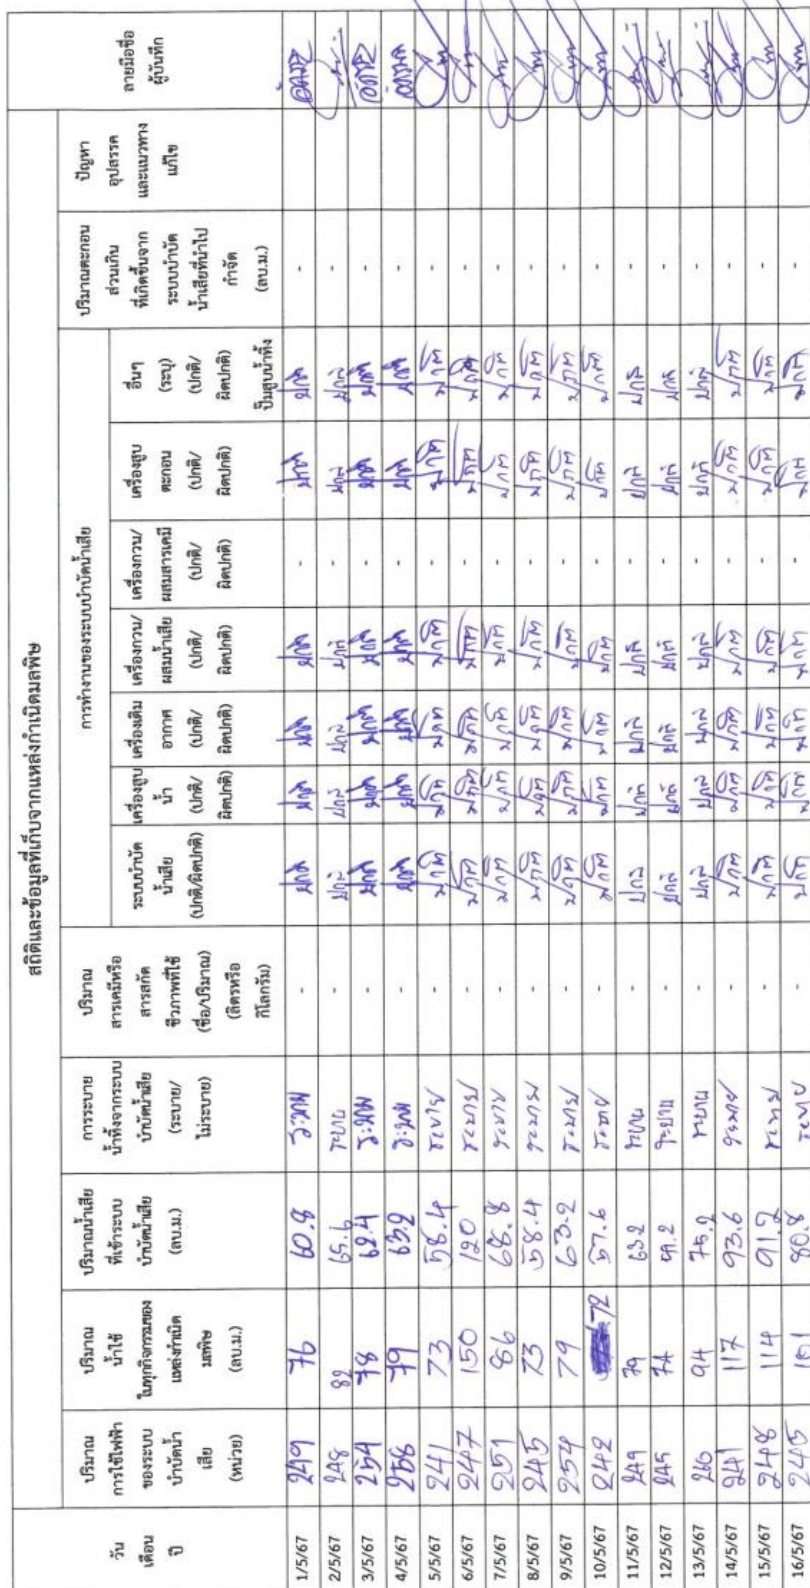 สถิติและข้อมูลที่เก็บจากแหล่งกำเนิดมลพิษ
วัน เดือน ปี
ปริมาณ การใช้ไฟฟ้า ของระบบ บำบัดน้ำ เสีย (หน่วย)
ปริมาณ น้ำใช้ ในทุกกิจกรรมของ แหล่งกำเนิด มลพิษ (ลบ.ม.)
ปริมาณน้ำเสีย ที่เข้าระบบ บำบัดน้ำเสีย (ลบ.ม.)
การระบาย น้ำทิ้งจากระบบ บำบัดน้ำเสีย (ระบาย/ ไม่ระบาย)
ปริมาณ สารเคมีหรือ สารสกัด ชีวภาพที่ใช้ (ชื่อ/ปริมาณ) (ลิตรหรือ กิโลกรัม)
การทำงานของระบบบำบัดน้ำเสีย
ระบบบำบัด น้ำเสีย (ปกติ/ผิดปกติ)
เครื่องสูบ น้ำ (ปกติ/ ผิดปกติ)
เครื่องเติม อากาศ (ปกติ/ ผิดปกติ)
เครื่องกวน/ ผสมน้ำเสีย (ปกติ/ ผิดปกติ)
เครื่องกวน/ ผสมสารเคมี (ปกติ/ ผิดปกติ)
เครื่องสูบ ตะกอน (ปกติ/ ผิดปกติ)
อื่นๆ (ระบุ) (ปกติ/ ผิดปกติ) ปั๊มสูบน้ำทิ้ง
ปริมาณตะกอน ส่วนเกิน ที่เกิดขึ้นจาก ระบบบำบัด น้ำเสียที่นำไป กำจัด (ลบ.ม.)
ปัญหา อุปสรรค และแนวทาง แก้ไข
ลายมือชื่อ ผู้บันทึก
1/5/67 249 76 60.8 ระบาย - ปกติ ปกติ ปกติ ปกติ - ปกติ ปกติ -
2/5/67 248 82 65.6 ระบาย - ปกติ ปกติ ปกติ ปกติ - ปกติ ปกติ -
3/5/67 254 78 62.4 ระบาย - ปกติ ปกติ ปกติ ปกติ - ปกติ ปกติ -
4/5/67 256 79 63.2 ระบาย - ปกติ ปกติ ปกติ ปกติ - ปกติ ปกติ -
5/5/67 241 73 58.4 ระบาย - ปกติ ปกติ ปกติ ปกติ - ปกติ ปกติ -
6/5/67 247 150 120 ระบาย - ปกติ ปกติ ปกติ ปกติ - ปกติ ปกติ -
7/5/67 251 86 68.8 ระบาย - ปกติ ปกติ ปกติ ปกติ - ปกติ ปกติ -
8/5/67 245 73 58.4 ระบาย - ปกติ ปกติ ปกติ ปกติ - ปกติ ปกติ -
9/5/67 254 79 63.2 ระบาย - ปกติ ปกติ ปกติ ปกติ - ปกติ ปกติ -
10/5/67 242 72 57.6 ระบาย - ปกติ ปกติ ปกติ ปกติ - ปกติ ปกติ -
11/5/67 249 79 63.2 ระบาย - ปกติ ปกติ ปกติ ปกติ - ปกติ ปกติ -
12/5/67 245 74 59.2 ระบาย - ปกติ ปกติ ปกติ ปกติ - ปกติ ปกติ -
13/5/67 260 94 75.2 ระบาย - ปกติ ปกติ ปกติ ปกติ - ปกติ ปกติ -
14/5/67 241 117 93.6 ระบาย - ปกติ ปกติ ปกติ ปกติ - ปกติ ปกติ -
15/5/67 248 114 91.2 ระบาย - ปกติ ปกติ ปกติ ปกติ - ปกติ ปกติ -
16/5/67 245 101 80.8 ระบาย - ปกติ ปกติ ปกติ ปกติ - ปกติ ปกติ -